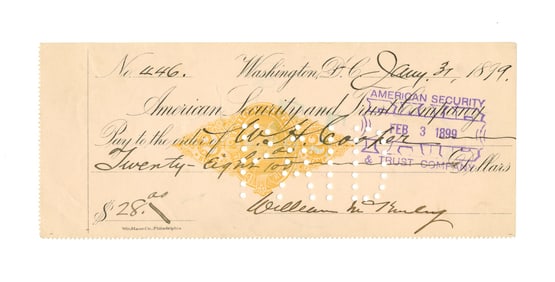 No. 446. Washington, D.C. Jany. 31, 1899.
American Security and Trust Company
Pay to the order of W. H.
Twenty-Eight 00/100 Dollars
$28.00
William McKinley
AMERICAN SECURITY
FEB 3 1899
& TRUST COMPANY